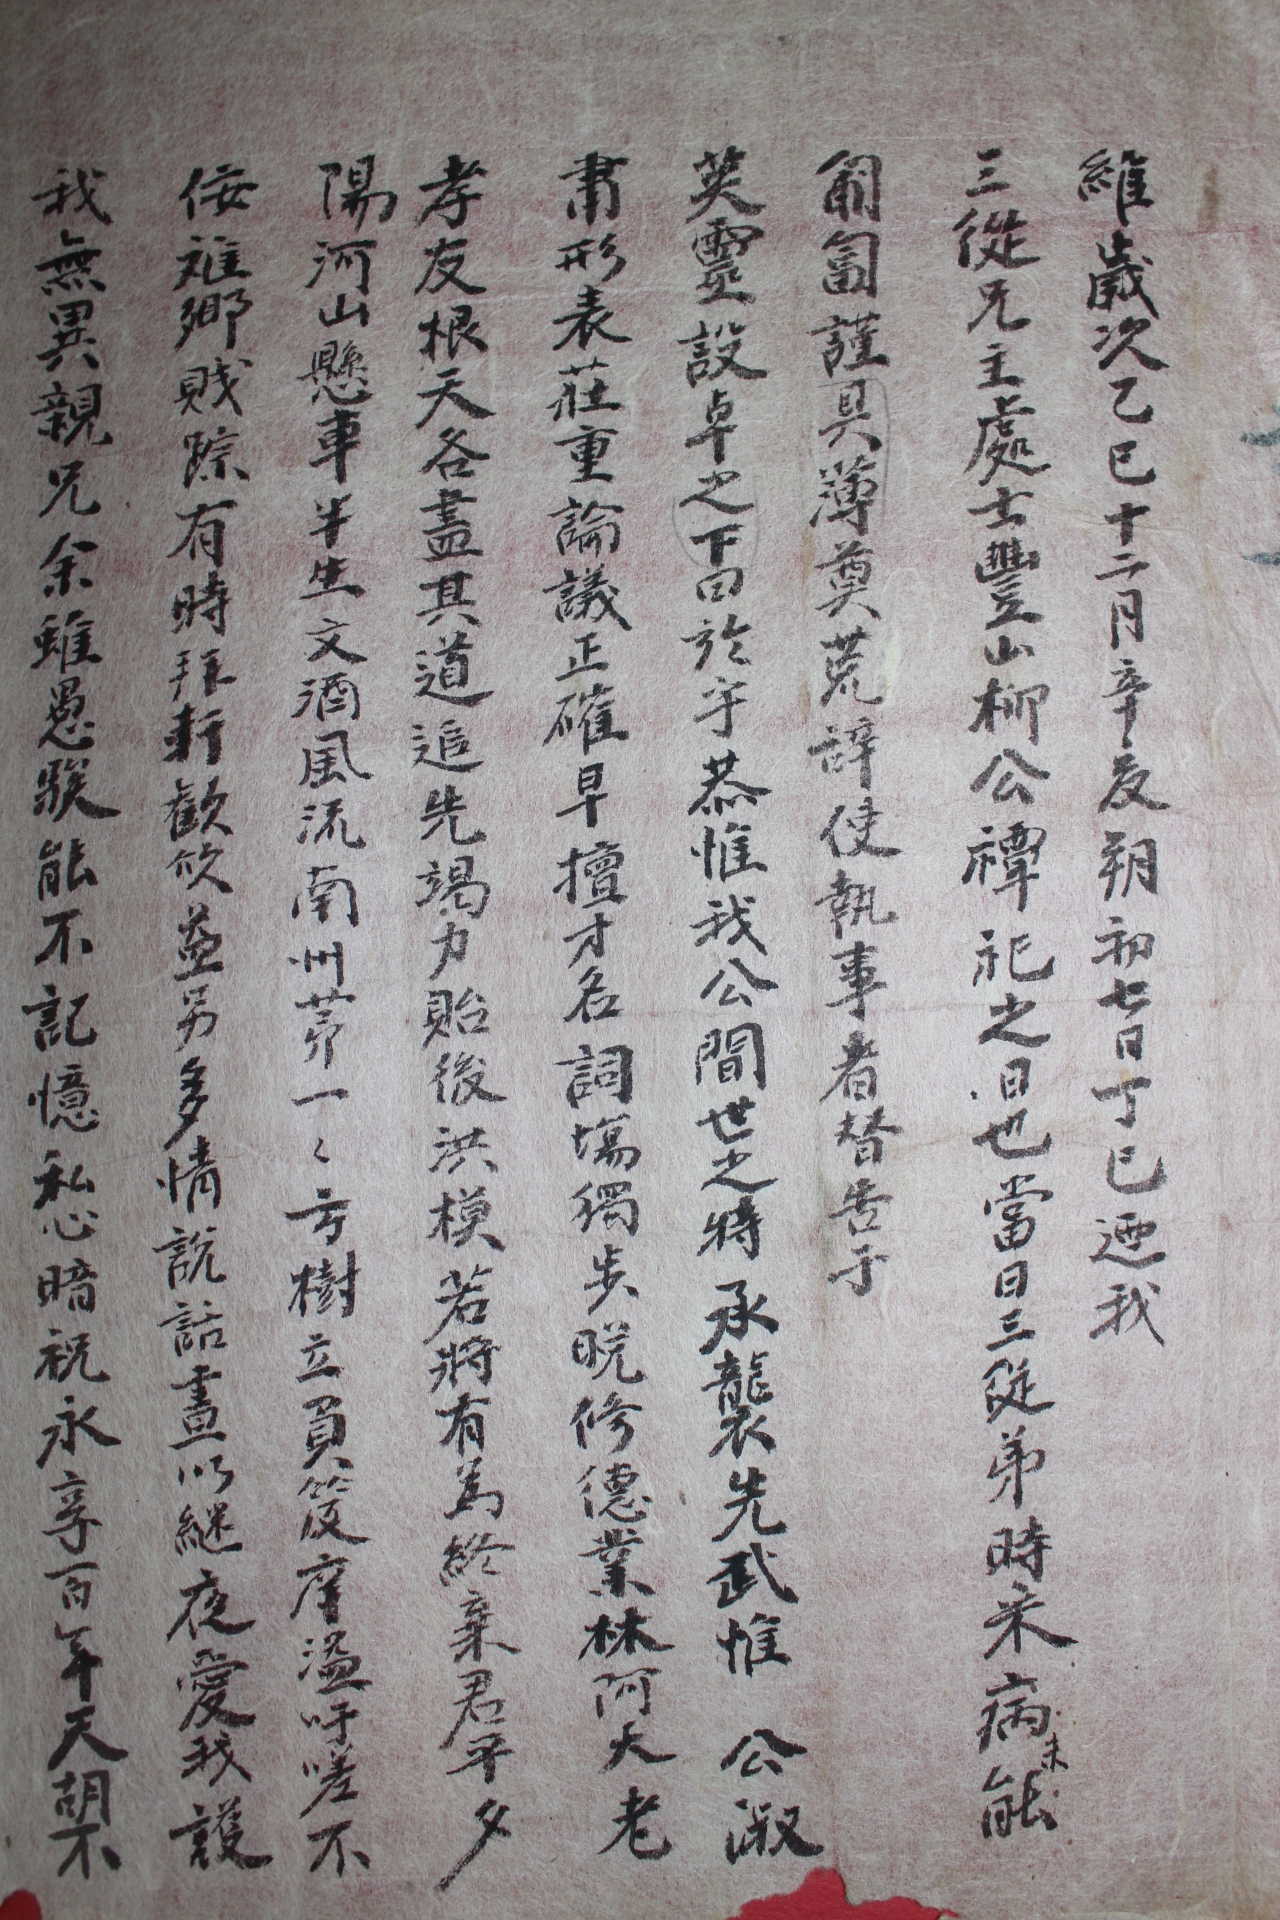 維歲次乙巳十二月辛亥朔初七日丁巳迺我
三從兄主處士豐山柳公禫祀之日也當日三從弟時釆病未能
匍匐謹具薄奠荒辭使執事者替告于
英靈設卓之下曰於乎恭惟我公間世之特承襲先武惟公淑
肅形表莊重論議正確早擅才名詞塲獨步晩修德業林阿大老
孝友根天各盡其道追先竭力貽後洪模若將有爲終棄君平夕
陽河山懸車半生文酒風流南州茅一々方樹立負笈庠溢吁嗟不
侫雖鄉賤踪有時拜軒歡欣益另多情說話晝以繼夜愛我護
我無異親兄余雖愚騃能不記憶私心暗祝永享百年天胡不